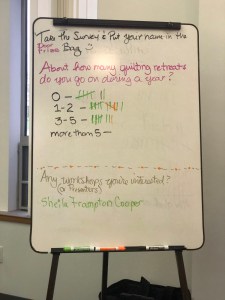 Take the Survey & Put your name in the
Door Prize Bag :)
About how many quilting retreats
do you go on during a year?
0 –
1-2 –
3-5 –
more than 5 –
Any workshops you're interested?
(or Presenters)
Sheila Frampton Cooper